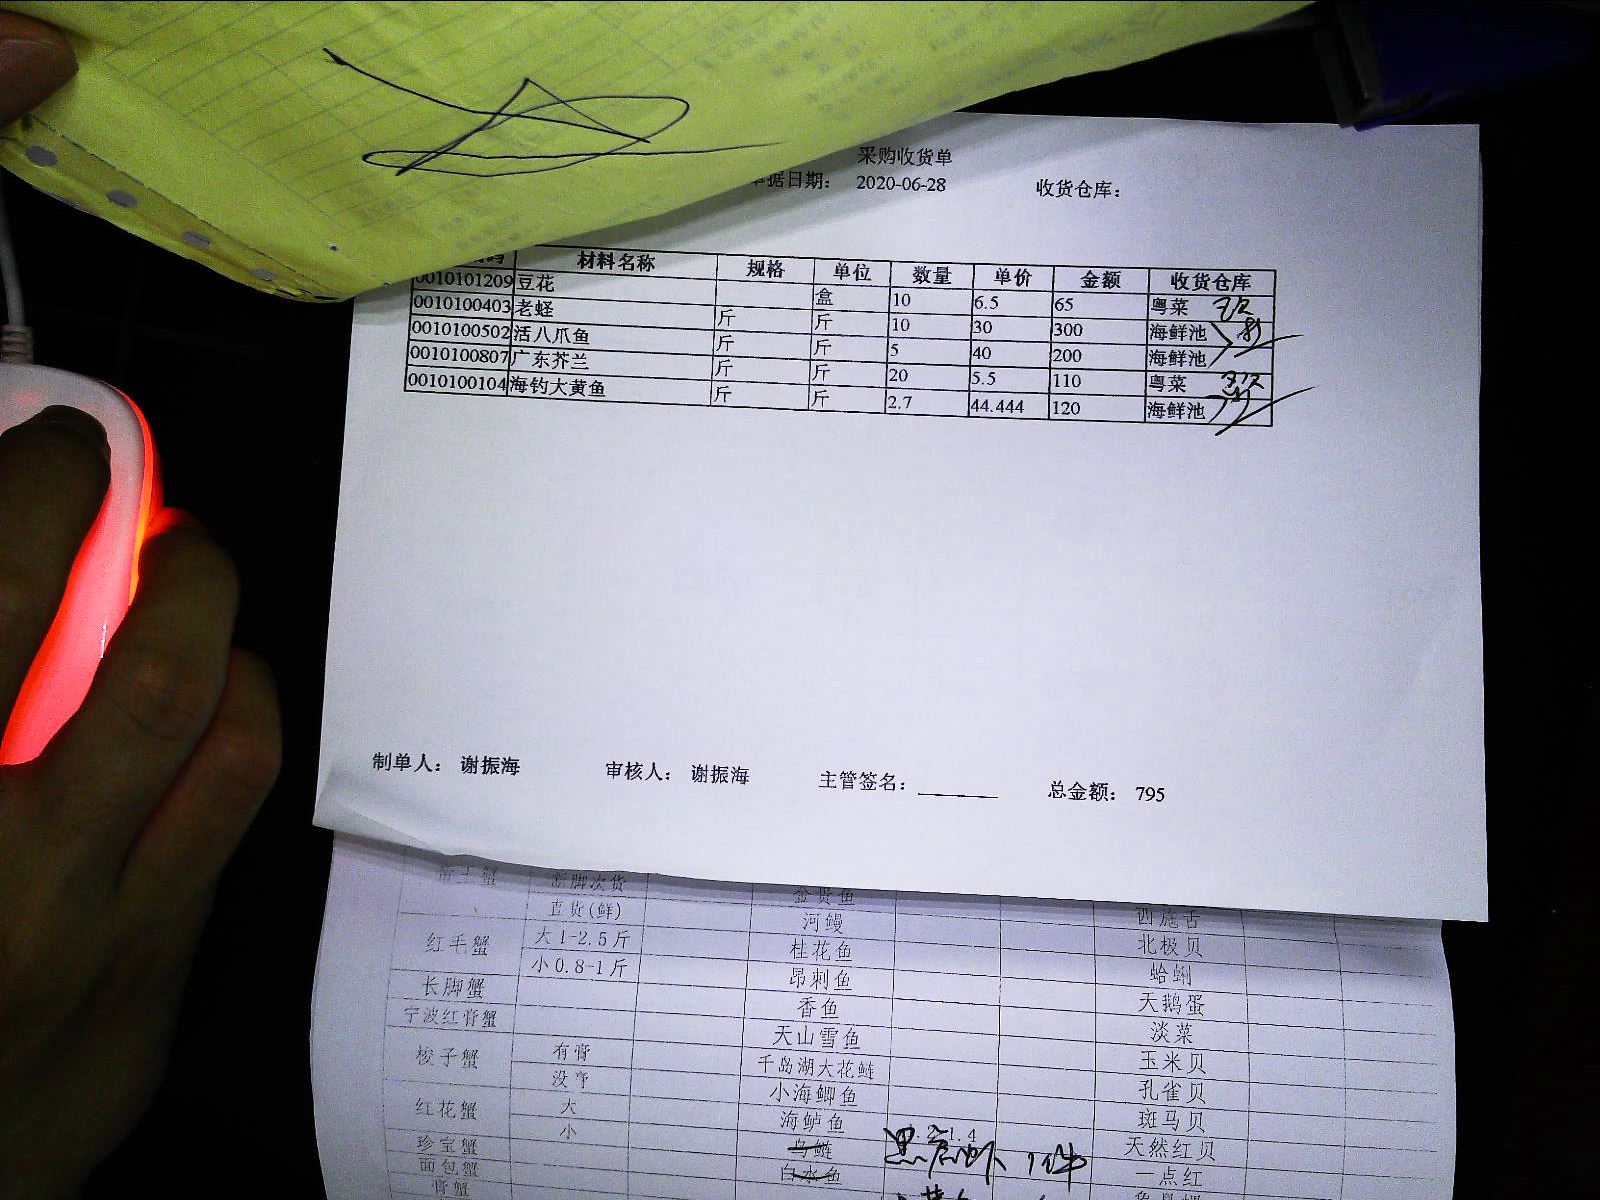 采购收货单
单据日期： 2020-06-28 收货仓库：
材料名称 规格 单位 数量 单价 金额 收货仓库
0010101209 豆花 盒 10 6.5 65 粤菜
0010100403 老蛏 斤 斤 10 30 300 海鲜池
0010100502 活八爪鱼 斤 斤 5 40 200 海鲜池
0010100807 广东芥兰 斤 斤 20 5.5 110 粤菜
0010100104 海钓大黄鱼 斤 斤 2.7 44.444 120 海鲜池
制单人： 谢振海 审核人： 谢振海 主管签名： 总金额： 795
断脚次货 金贵鱼
直货(鲜) 河鳗 西施舌
红毛蟹 大1-2.5斤 桂花鱼 北极贝
小0.8-1斤 昂刺鱼 蛤蜊
长脚蟹 香鱼 天鹅蛋
宁波红膏蟹 天山雪鱼 淡菜
梭子蟹 有膏 千岛湖大花鲢 玉米贝
没膏 小海鲫鱼 孔雀贝
红花蟹 大 海鲈鱼 斑马贝
小 乌鲢 1.4 天然红贝
珍宝蟹 白水鱼 1件 一点红
面包蟹
膏蟹